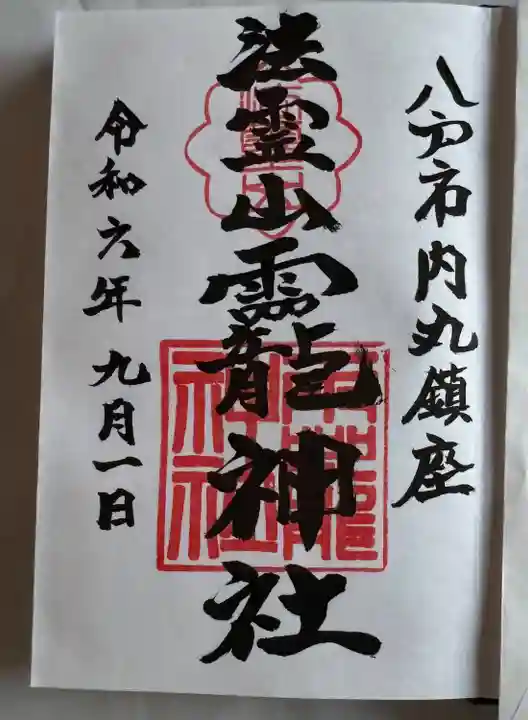 八戸市内丸鎮座
法霊山龗神社
令和六年九月一日
龗神社